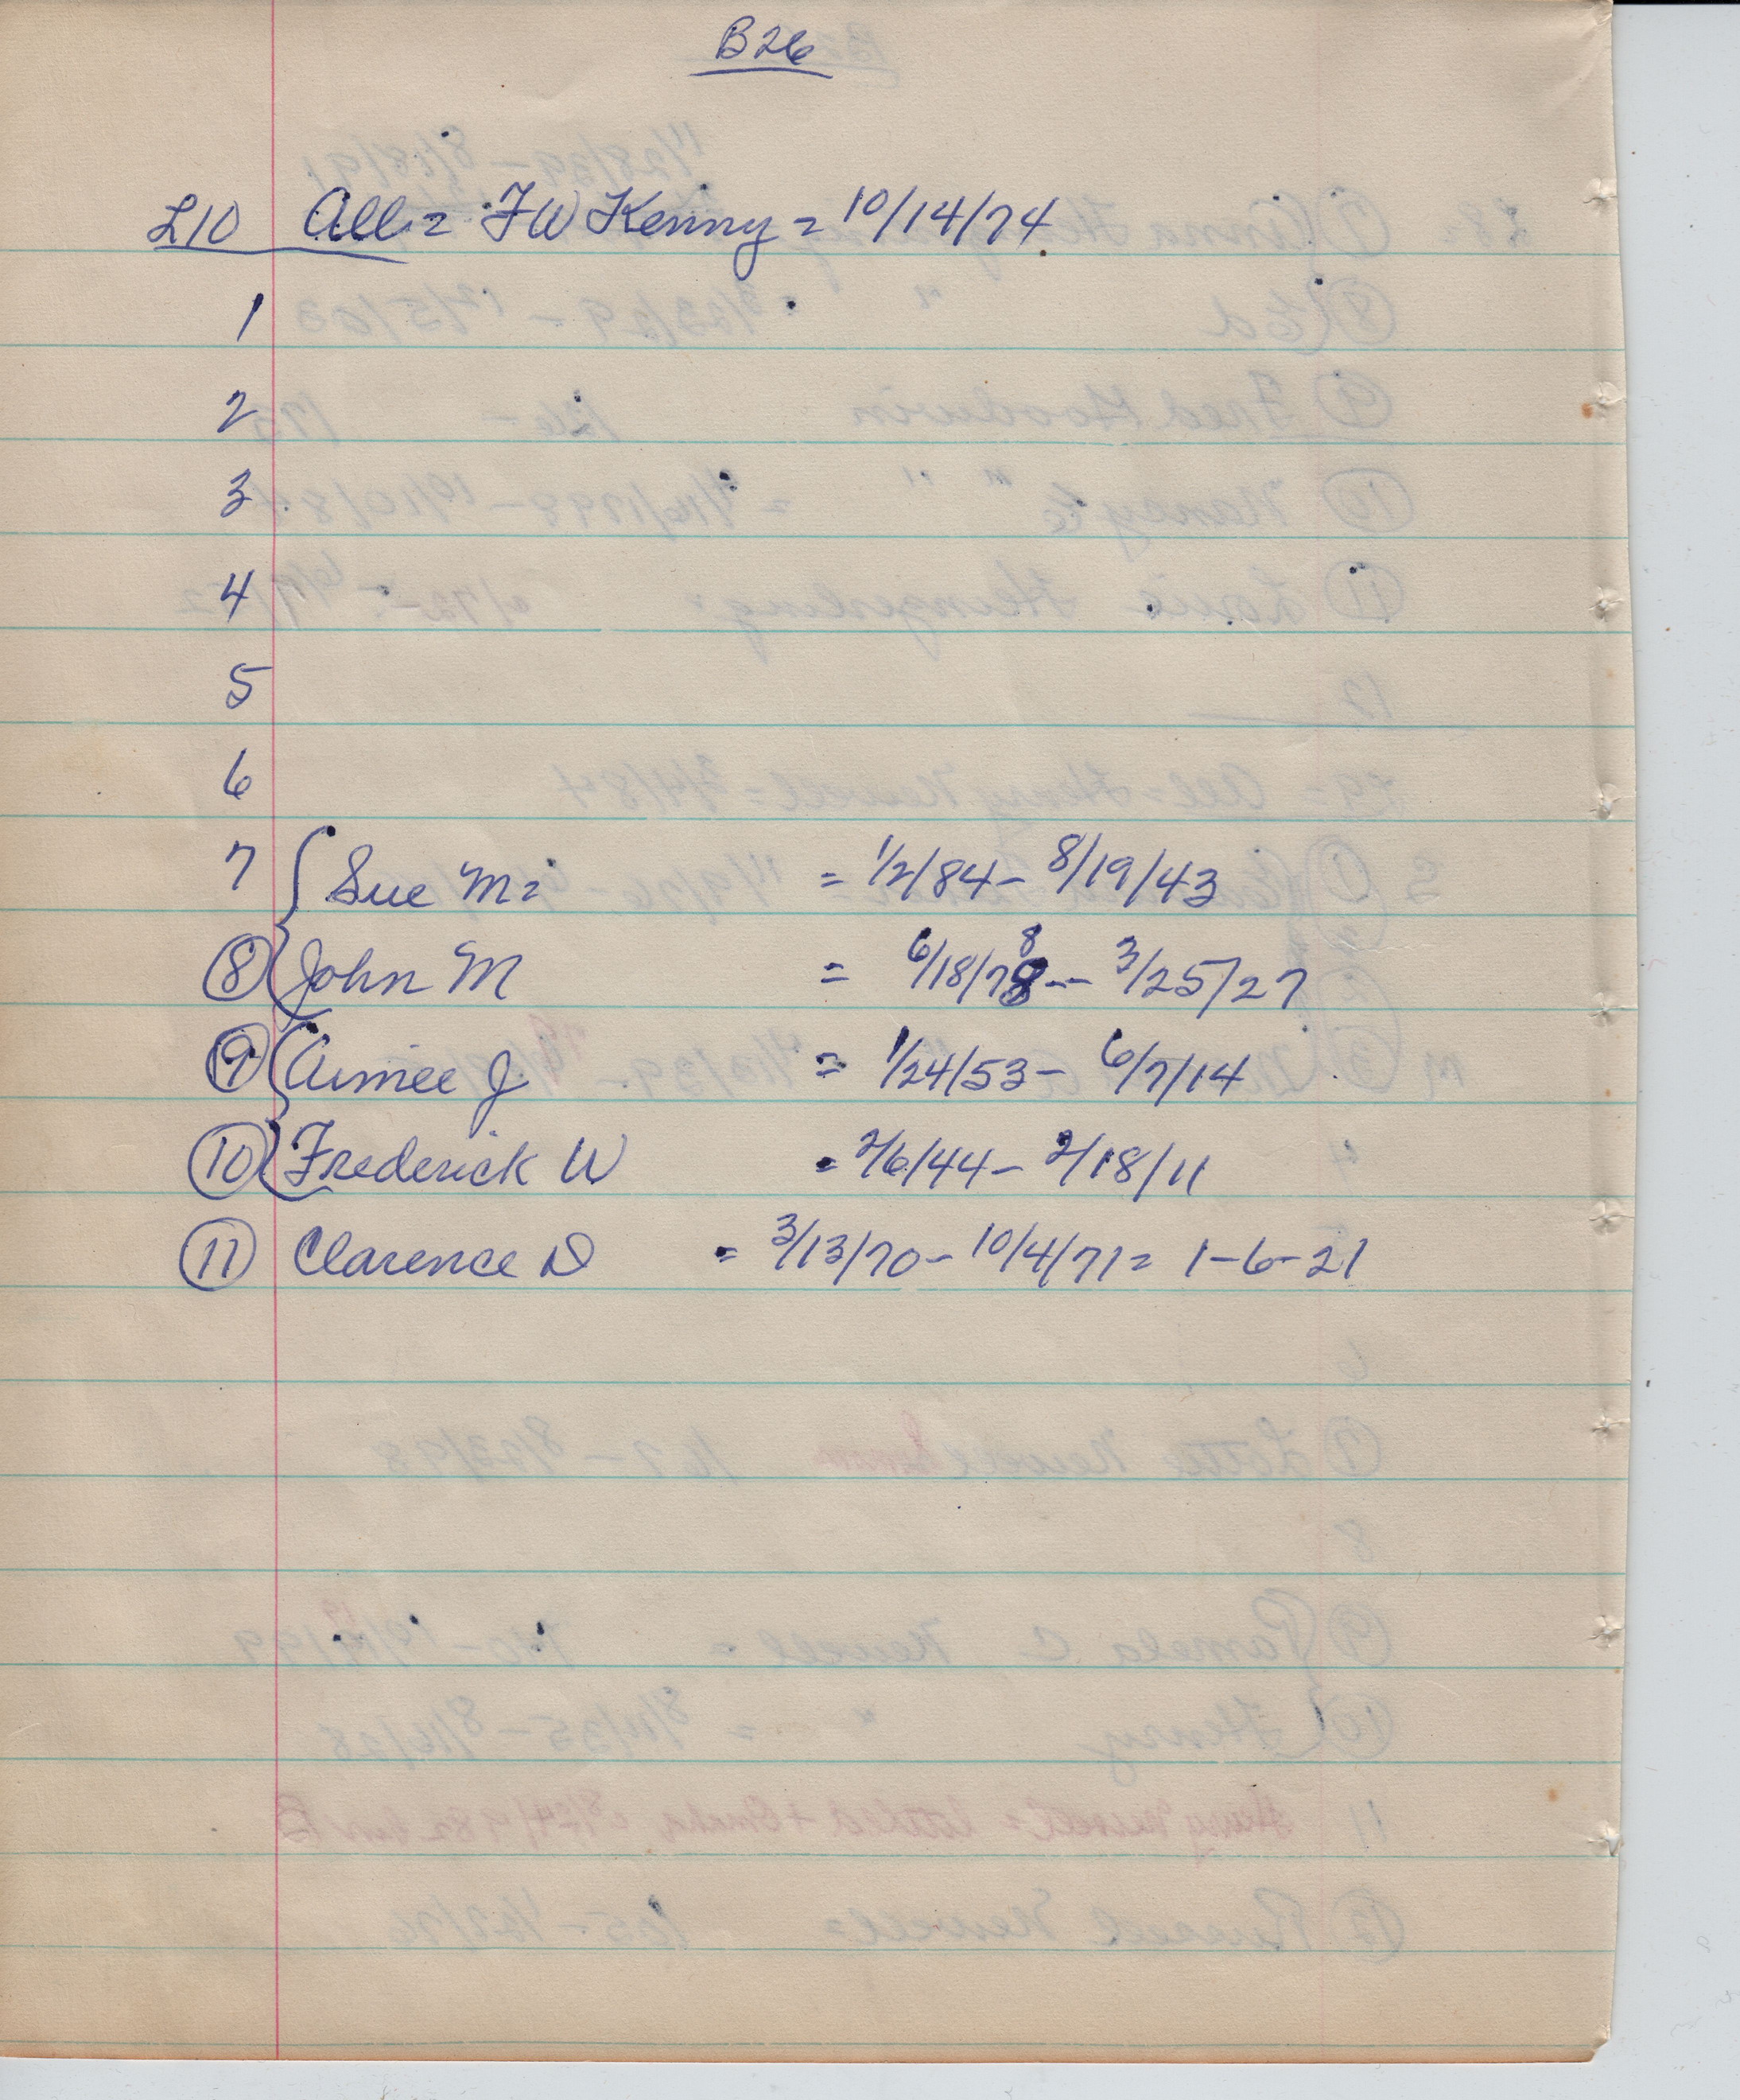 B26
L10 All = FW Kenny = 10/14/74
1
2
3
4
5
6
7 { Sue M = = 1/2/84 - 8/19/43
8 John M = 6/18/78 8 -- 3/25/27
9 { Aimee J = 1/24/53 - 6/7/14
10 Frederick W = 2/6/44 - 2/18/11
11 Clarence D = 3/13/70 - 10/4/71 = 1-6-21